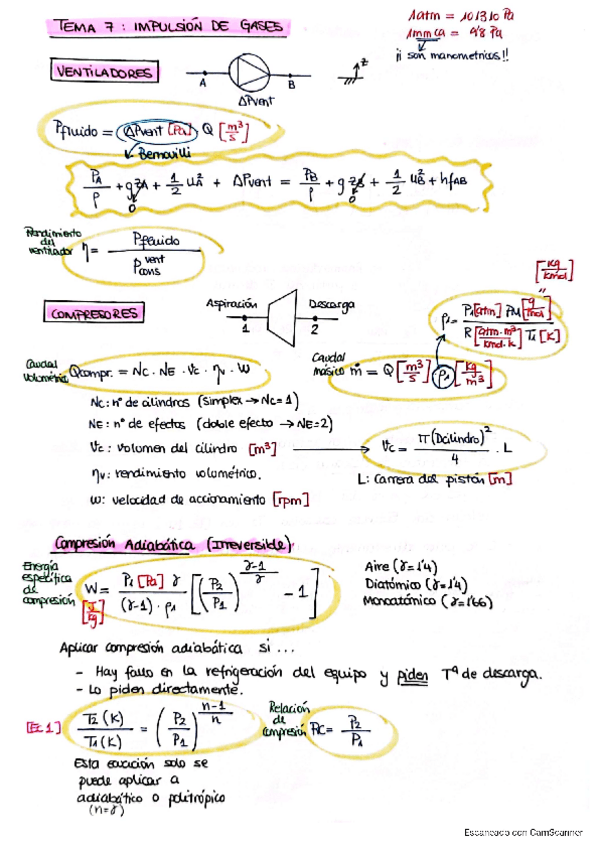 TEMA 7: IMPULSIÓN DE GASES
1atm = 101310 Pa
1mmca = 9'8 Pa
¡¡ son manometricos!!
VENTILADORES
A B z
ΔPvent
Pfluido = ΔPvent [Pa] Q [m³/s]
Bernouilli
PA/ρ + g zA + 1/2 uA² + ΔPvent = PB/ρ + g zB + 1/2 uB² + hfAB
0 0
Rendimiento del ventilador η = Pfluido / Pcons vent
[kg/kmol]
COMPRESORES
Aspiración Descarga
1 2
ρ1 = P1[atm] PM [g/mol] / R [atm·m³/kmol·K] T1 [K]
Caudal volumétrico Qcompr. = Nc · NE · Vc · ηv · w
Caudal másico ṁ = Q [m³/s] ρ1 [kg/m³]
Nc: nº de cilindros (simplex → Nc=1)
NE: nº de efectos (doble efecto → NE=2)
Vc: volumen del cilindro [m³] → Vc = π (Dcilindro)² / 4 · L
ηv: rendimiento volumétrico.
L: Carrera del pistón [m]
w: velocidad de accionamiento [rpm]
Compresión Adiabática (Irreversible)
Energía específica de compresión W [J/kg] = P1 [Pa] γ / (γ-1) · ρ1 [(P2/P1)^(γ-1/γ) - 1]
Aire (γ=1'4)
Diatómico (γ=1'4)
Monoatómico (γ=1'66)
Aplicar compresión adiabática si ...
- Hay fallo en la refrigeración del equipo y piden Tª de descarga.
- Lo piden directamente.
[Ec.1] T2 (K) / T1 (K) = (P2/P1)^(n-1/n)
Relación de compresión RC = P2/P1
Esta ecuación solo se
puede aplicar a
adiabático o politrópico
(n=γ)
Escaneado con CamScanner